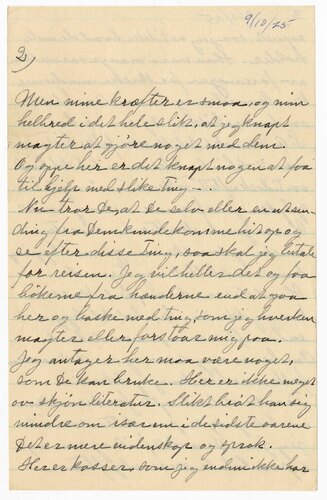 9/10/25
2)
Men mine kræfter er smaa, og min
helbred i det hele slik, at jeg knapt
magter at gjøre noget med dem.
Og oppe her er det knapt nogen at faa
til hjelp med slike ting –.
Nu tror De, at De selv eller en utsen-
ding fra Dem kunde komme hit op og
se efter disse ting, saa skal jeg betale
for reisen. Jeg vil heller det og faa
bökerne fra hænderne end at gaa
her og baske med ting, som jeg hverken
magter eller forstaar mig paa.
Jeg antager her maa være noget,
som De kan bruke. Her er ikke meget
av skjøn literatur. Slikt brøt han sig
mindre om især nu i de sidste aarene
Det er mere videnskap og sprok.
Her er kasser, som jeg endnu ikke har